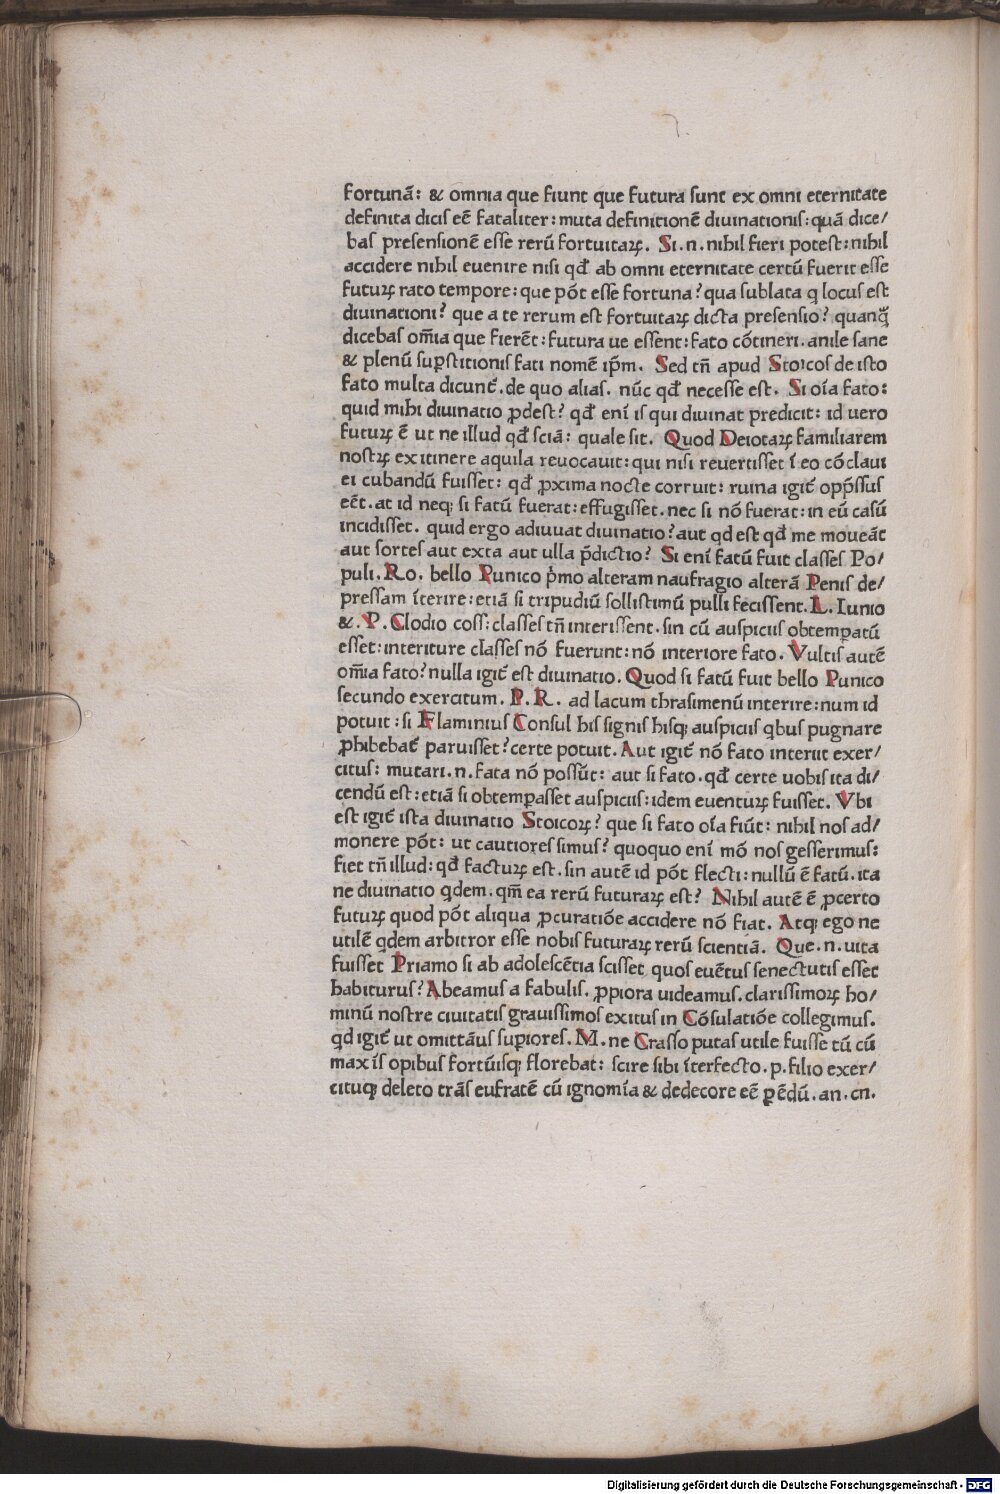 fortunã: & omnia que fiunt que futura sunt ex omni eternitate
definita dicis eẽ fataliter: muta definitionẽ diuinationis: quã dice/
bas presensionẽ esse rerũ fortuitaꝝ. Si.n.nihil fieri potest: nihil
accidere nihil euenire nisi qđ ab omni eternitate certũ fuerit esse
futuꝝ rato tempore: que põt esse fortuna? qua sublata q locus est
diuinationi? que a te rerum est fortuitaꝝ dicta presensio? quanꝙ̃
dicebas om̃ia que fierẽt: futura ue essent: fato cõtineri. anile sane
& plenũ suꝑstitionis fati nomẽ ip̃m. Sed tñ apud Stoicos de isto
fato multa dicunt᷑. de quo alias. nũc qđ necesse est. Si oĩa fato:
quid mihi diuinatio ꝓdest? qđ eni᷑ is qui diuinat predicit: id uero
futuꝝ ẽ ut ne illud qđ sciã: quale sit. Quod Deiotaꝝ familiarem
nostꝝ ex itinere aquila reuocauit: qui nisi reuertisset ĩ eo cõclaui
ei cubandũ fuisset: qđ ꝓxima nocte corruit: ruina igit᷑ opp̃ssus
eẽt. at id neqꝫ si fatũ fuerat: effugisset. nec si nõ fuerat: in eũ casũ
incidisset. quid ergo adiuuat diuinatio? aut qd est qđ me moueãt
aut sortes aut exta aut ulla p̃dictio? Si eni᷑ fatũ fuit classes Po/
puli. Ro. bello Punico p̃mo alteram naufragio alterã Penis de/
pressam ĩterire: etiã si tripudiũ sollistimũ pulli fecissent. L. Iunio
&. P. Clodio coss: classes tñ interissent. sin cũ auspiciis obtemꝑatũ
esset: interiture classes nõ fuerunt: nõ interiore fato. Vultis autẽ
om̃ia fato? nulla igit᷑ est diuinatio. Quod si fatũ fuit bello Punico
secundo exercitum. P. R. ad lacum thrasimenũ interire: num id
potuit: si Flaminius Consul his signis hisqꝫ auspiciis qbus pugnare
ꝓhibebat᷑ paruisset? certe potuit. Aut igit᷑ nõ fato interiit exer/
citus: mutari.n.fata nõ possũt: aut si fato. qđ certe uobis ita di/
cendũ est: etiã si obtemꝑasset auspiciis: idem euentuꝝ fuisset. Vbi
est igit᷑ ista diuinatio Stoicoꝝ? que si fato oĩa fiũt: nihil nos ad/
monere põt: ut cautiores simus? quoquo eni᷑ mõ nos gesserimus:
fiet tñ illud: qđ factuꝝ est. sin autẽ id põt flecti: nullũ ẽ fatũ. ita
ne diuinatio qdem. qm̃ ea rerũ futuraꝝ est? Nihil autẽ ẽ ꝓcerto
futuꝝ quod põt aliqua ꝓcuratiõe accidere nõ fiat. Atqꝫ ego ne
utilẽ qdem arbitror esse nobis futuraꝝ rerũ scientiã. Que.n.uita
fuisset Priamo si ab adolescẽtia scisset quos euẽtus senectutis esset
habiturus? Abeamus a fabulis. ꝓpiora uideamus. clarissimoꝝ ho/
minũ nostre ciuitatis grauissimos exitus in Cõsulatiõe collegimus.
qd igit᷑ ut omittãus suꝑiores. M. ne Crasso putas utile fuisse tũ cũ
maxĩs opibus fortũisqꝫ florebat: scire sibi ĩterfecto. p. filio exer/
cituqꝫ deleto trãs eufratẽ cũ ignomĩa & dedecore eẽ ꝑẽdũ. an. cn.
Digitalisierung gefördert durch die Deutsche Forschungsgemeinschaft - DFG